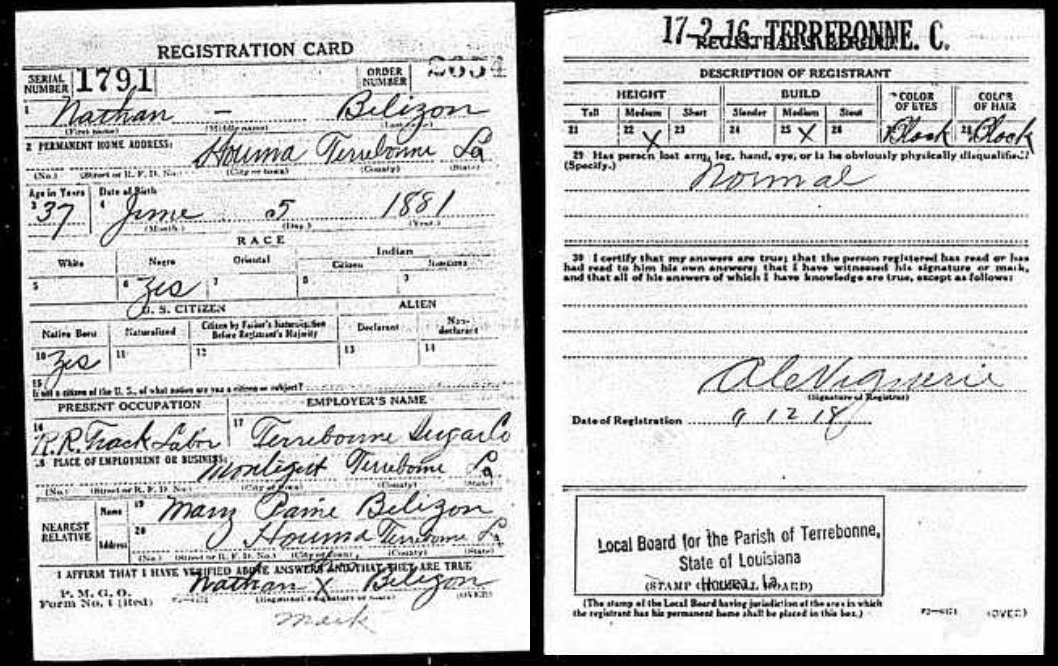 REGISTRATION CARD
SERIAL NUMBER 1791 ORDER NUMBER
1 Nathan - Belizon
(First name) (Middle name) (Last name)
2 PERMANENT HOME ADDRESS:
Houma Terrebonne La
(No.) (Street or R. F. D. No.) (City or town) (County) (State)
Age in Years Date of Birth
3 37 4 June 5 1881
(Month.) (Day.) (Year.)
RACE
White Negro Oriental Indian
Citizen
5 6 Yes 7 8 9
U. S. CITIZEN ALIEN
Native Born Naturalized Citizen by Father's Naturalization Before Registrant's Majority Declarant Non-declarant
10 Yes 11 12 13 14
15
If not a citizen of the U. S., of what nation are you a citizen or subject?
PRESENT OCCUPATION EMPLOYER'S NAME
16 R.R. Track Labor 17 Terrebonne Sugar Co
18 PLACE OF EMPLOYMENT OR BUSINESS:
Terrebonne La
(No.) (Street or R. F. D. No.) (City or town) (County) (State)
NEAREST RELATIVE Name 19 Mary Belizon
Address 20 Houma Terrebonne La
(No.) (Street or R. F. D. No.) (City or town) (County) (State)
I AFFIRM THAT I HAVE VERIFIED ABOVE ANSWERS AND THAT THEY ARE TRUE
P. M. G. O.
Form No. 1 (Red) Nathan X Belizon
(Registrant's signature or mark) (OVER)
mark
17-2-16 TERREBONNE. C.
REGISTRAR'S REPORT
DESCRIPTION OF REGISTRANT
HEIGHT BUILD COLOR OF EYES COLOR OF HAIR
Tall Medium Short Slender Medium Stout
21 22 X 23 24 25 X 26 Black 28 Black
29 Has person lost arm, leg, hand, eye, or is he obviously physically disqualified?
(Specify.)
Normal
30 I certify that my answers are true; that the person registered has read or has
had read to him his own answers; that I have witnessed his signature or mark,
and that all of his answers of which I have knowledge are true, except as follows:
(Signature of Registrar)
Date of Registration 9 12 18
Local Board for the Parish of Terrebonne,
State of Louisiana
Houma, La.
(STAMP OF LOCAL BOARD)
(The stamp of the Local Board having jurisdiction of the area in which
the registrant has his permanent home shall be placed in this box.)
(OVER)